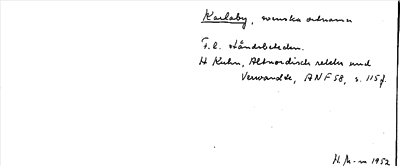 Karlaby, svenska ortnamn
F.l. ståndsbeteckn.
H Kuhn, Altnordisch rekkr und
Verwandte, ANF 58, s. 115 f.
H. M-n 1952